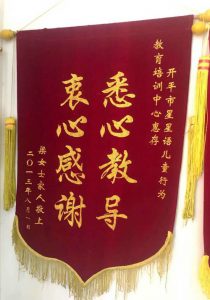 开平市星星语儿童行为
教育培训中心惠存
悉心教导
衷心感谢
梁女士家人敬上
二〇一三年八月